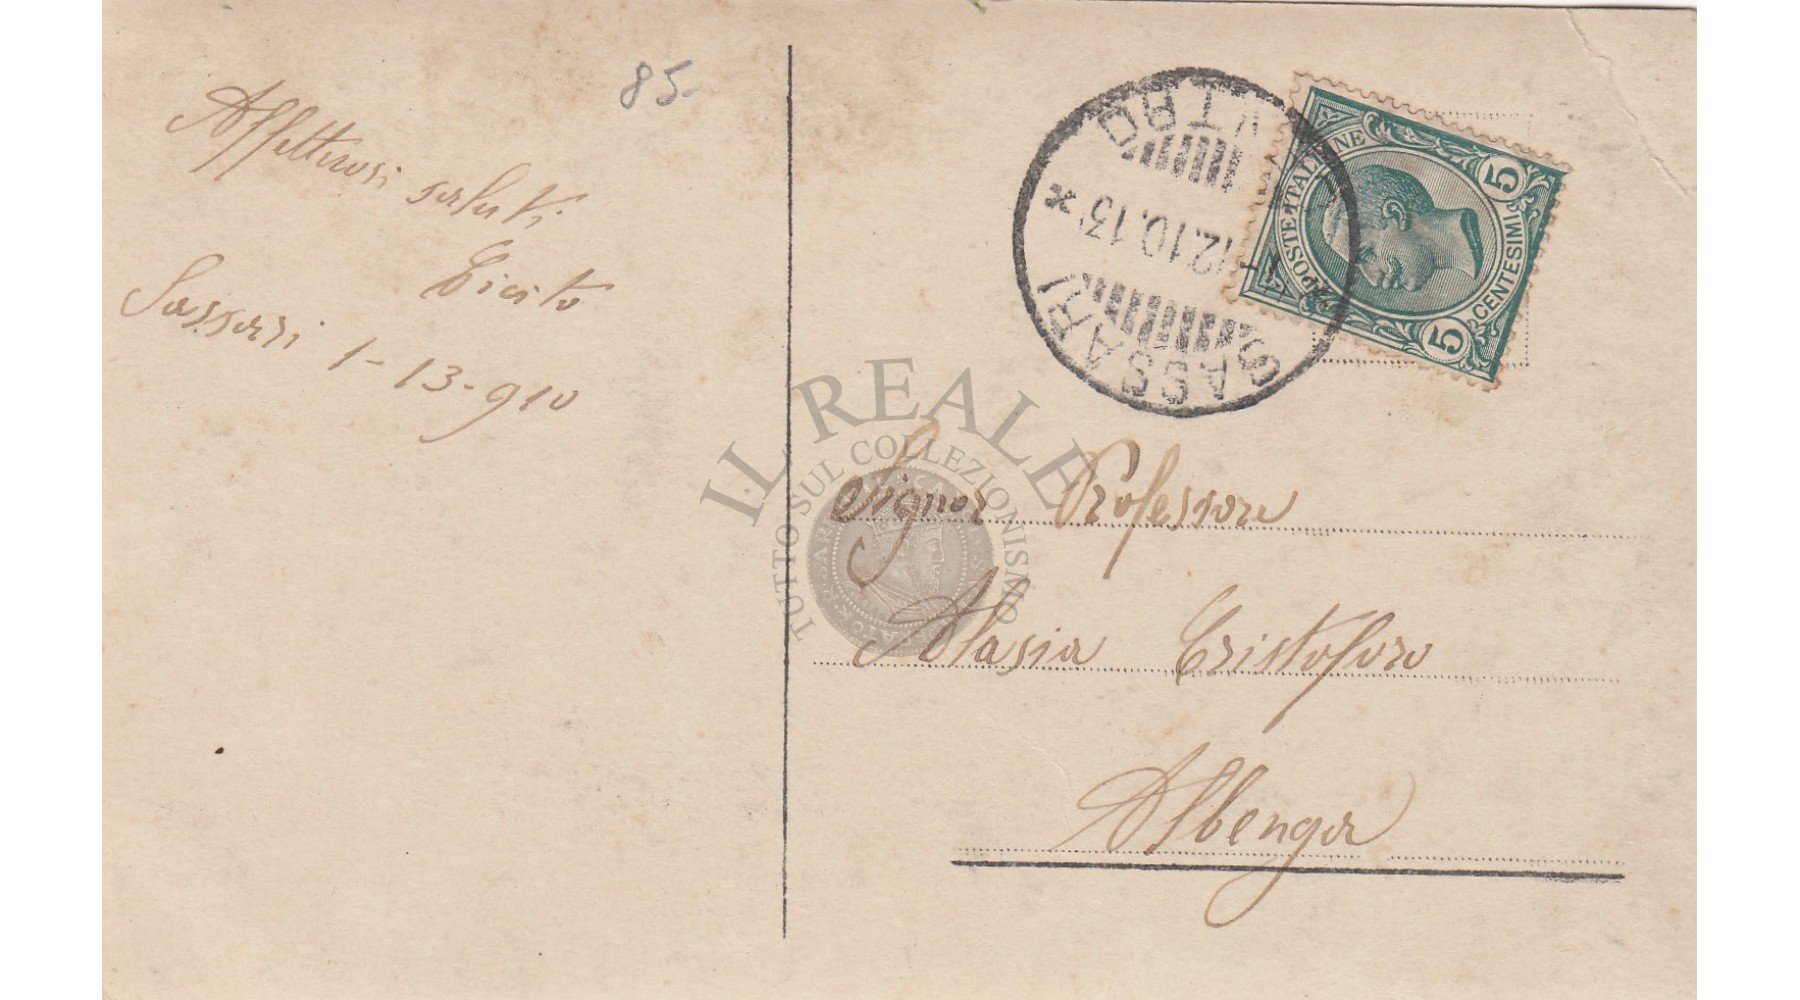 85.-
Affettuosi saluti
Sassari 1-13-910
SASSARI
12.10.13
POSTE ITALIANE
5 CENTESIMI 5
Signor Professore
Alasia Cristoforo
Albenga
IL REALE
TUTTO SUL COLLEZIONISMO